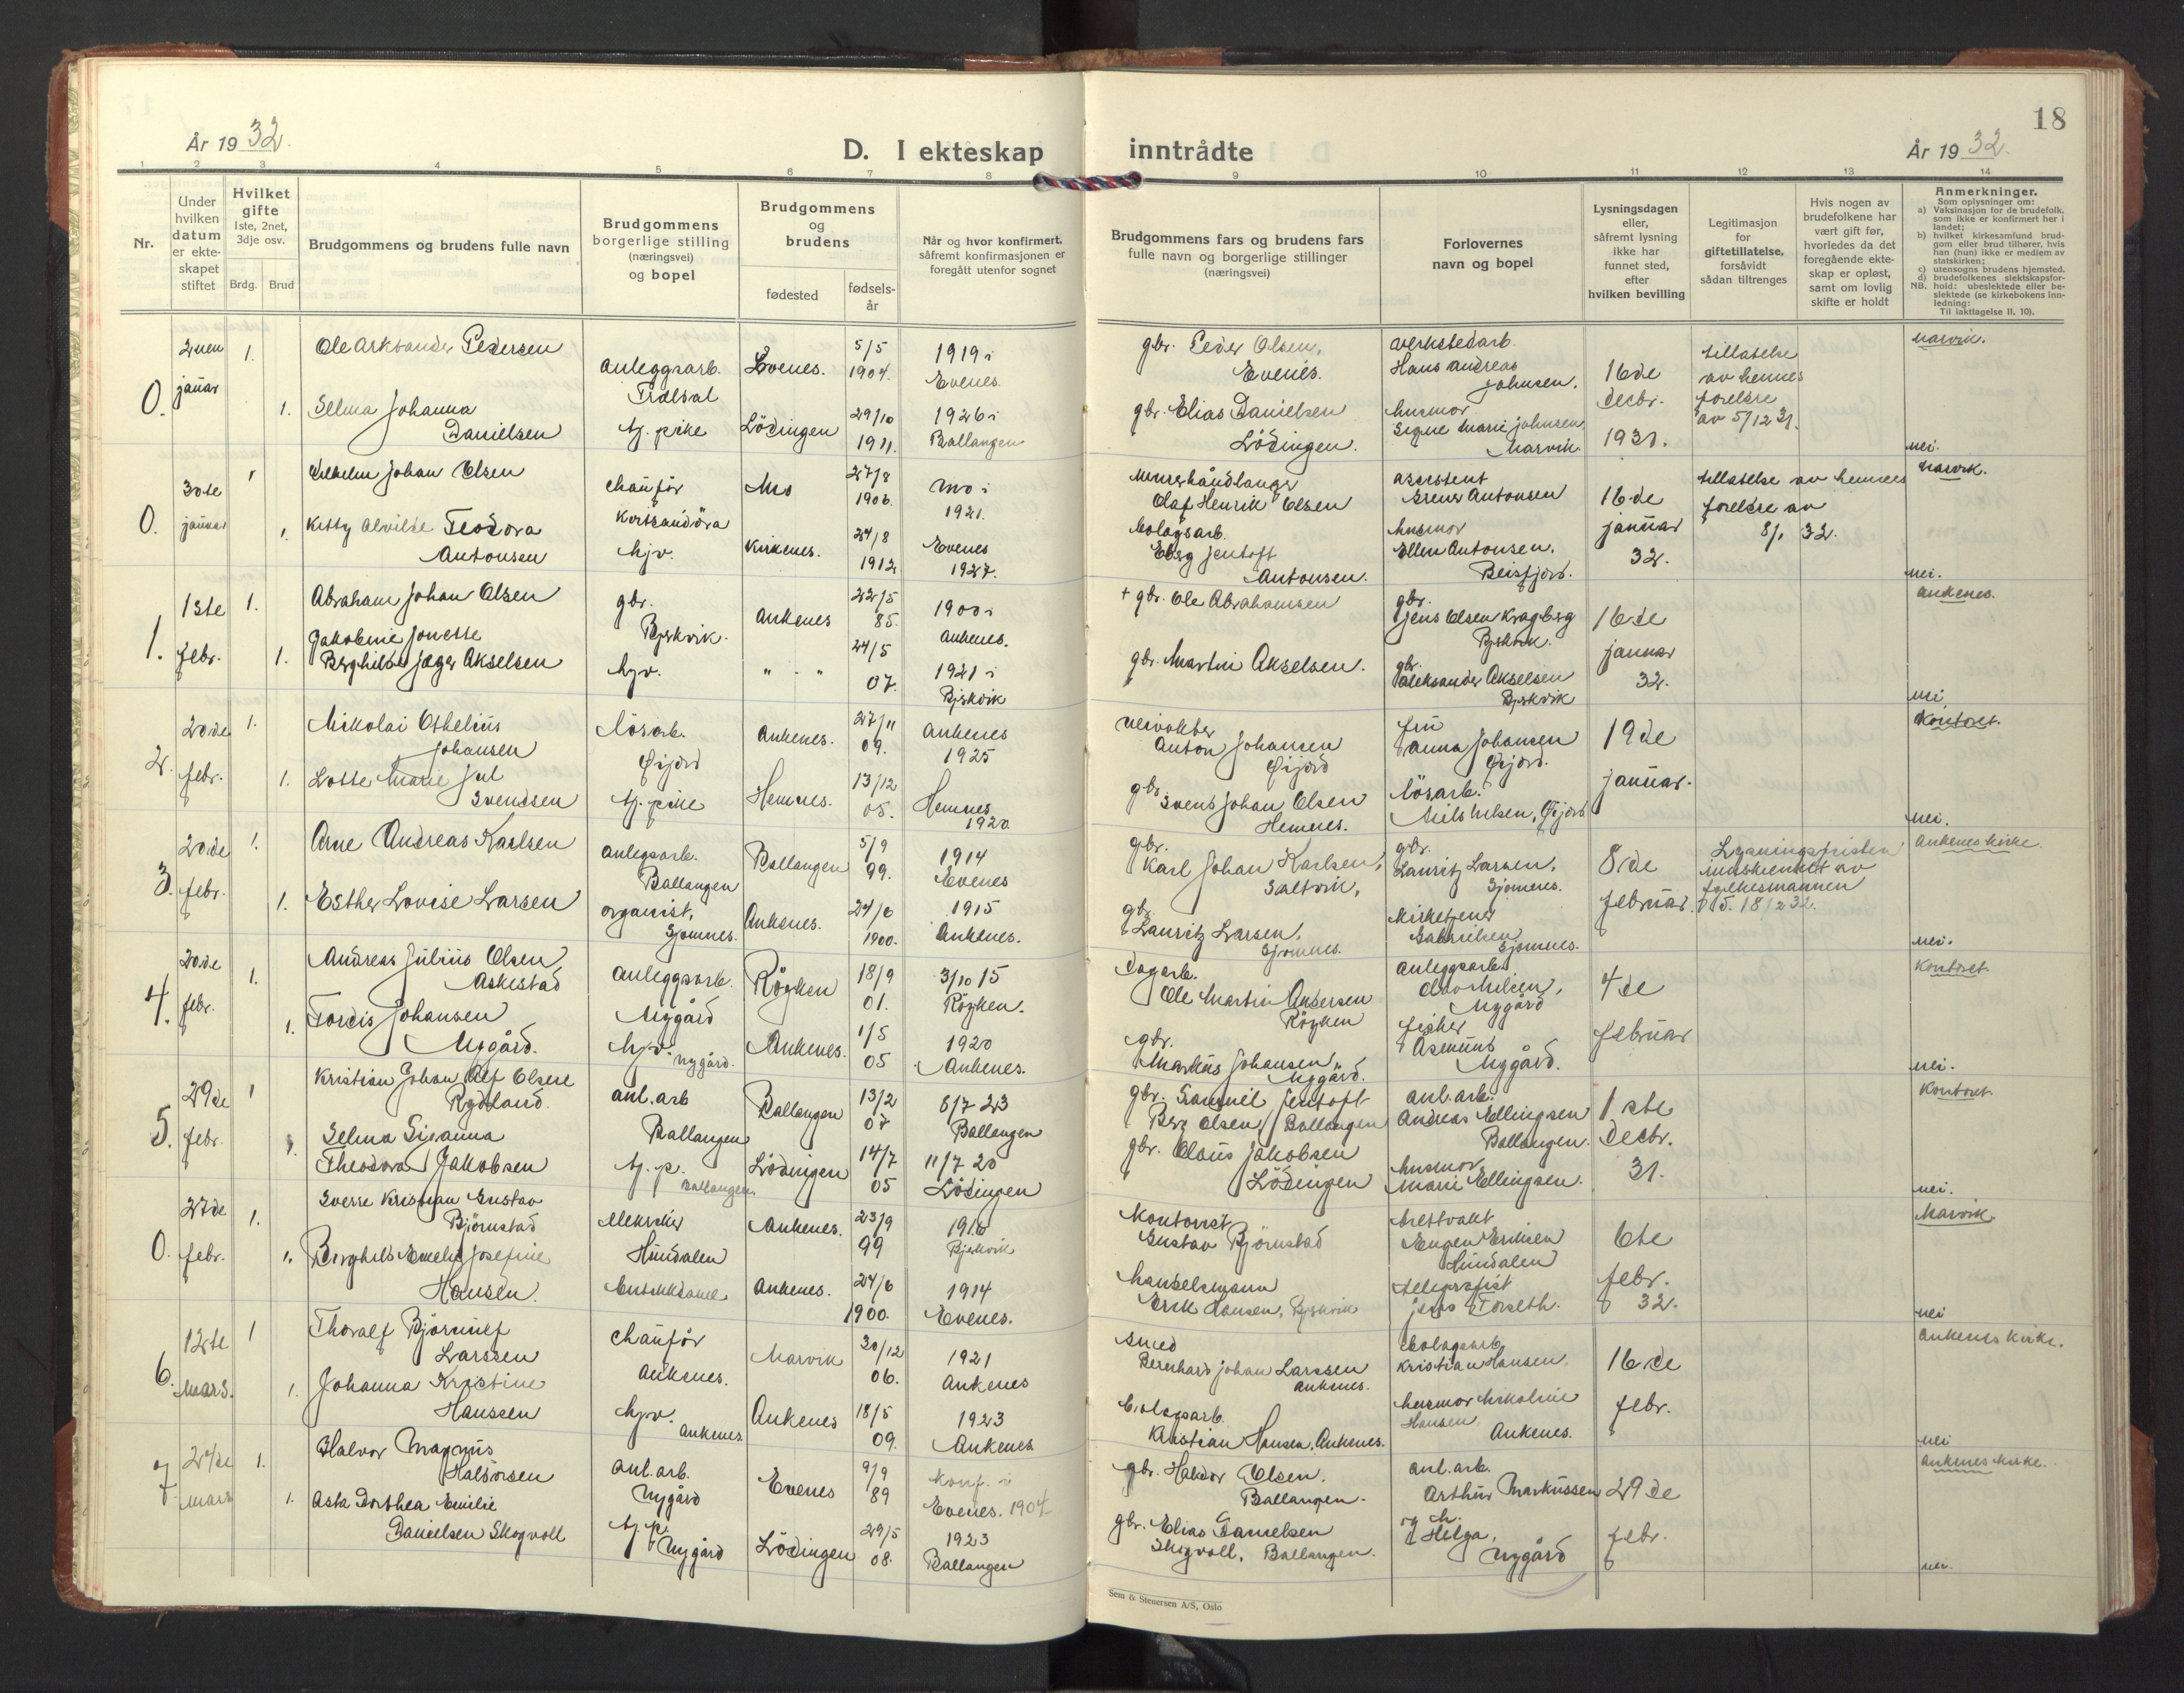 18
År 1932.
D. I ekteskap inntrådte
År 1932.
1 2 3 4 5 6 7 8 9 10 11 12 13 14
Nr.
Under hvilken datum er ekte-skapet stiftet
Hvilket gifte
1ste, 2net, 3dje osv.
Brdg. Brud
Brudgommens og brudens fulle navn
Brudgommens borgerlige stilling (næringsvei) og bopel
Brudgommens og brudens
fødested
fødsels-år
Når og hvor konfirmert, såfremt konfirmasjonen er foregått utenfor sognet
Brudgommens fars og brudens fars
fulle navn og borgerlige stillinger
(næringsvei)
Forlovernes
navn og bopel
Lysningsdagen
eller, såfremt lysning ikke har funnet sted, efter
hvilken bevilling
Legitimasjon for giftetillatelse, forsåvidt sådan tiltrenges
Hvis nogen av brudefolkene har vært gift før, hvorledes da det foregående ekte-skap er opløst, samt om lovlig skifte er holdt
Anmerkninger.
Som oplysninger om:
a) Vaksinasjon for de brudefolk, som ikke er konfirmert her i landet;
b) hvilket kirkesamfund brud-gom eller brud tilhører, hvis han (hun) ikke er medlem av statskirken;
c) utensogns brudens hjemsted.
d) brudefolkenes slektskapsfor-hold: ubeslektede eller be-slektede (se kirkebokens inn-ledning:
NB.
Til iakttagelse II. 10).
0. 2nen januar 1. Ole Arksander Pedersen
anleggsarb. Trældal
Evenes. 5/5 1904. 1919 i Evenes.
gbr. Peder Olsen, Evenes.
verkstedarb. Hans Andreas Johnsen.
16de decbr. 1931.
tillatelse av hennes foreldre av 5/12 31.
Narvik.
1. Selma Johanna Danielsen
tj. pike Lödingen 29/10 1911. 1926 i Ballangen
gbr. Elias Danielsen Lödingen.
husmor Signe Marie Johnsen Narvik
nei.
0. 30te januar 1 Vilhelm Johan Olsen
chauför
Mo 27/8 1906. Mo i 1921.
Murerhåndlanger Olaf Henrik Olsen
assistent Antonsen
16de januar 32.
tillatelse av hennes foreldre av 8/1 32.
Narvik.
1. Kitty Alvilde Teodora Antonsen
hjv. Kirkenes. 24/8 1912 Evenes 1927.
bolagsarb. Eberg Jentoft Antonsen.
husmor Ellen Antonsen, Beisfjord.
nei.
1. 1ste febr. 1. Abraham Johan Olsen
gbr. Bjerkvik.
Ankenes 22/5 85. 1900 i Ankenes.
+ gbr. Ole Abrahamsen
gbr. Jens Olsen Kragberg Bjerkvik.
16de januar 32.
Ankenes.
1. Jakobine Jonette Berghilde Jæger Akselsen
hjv. " - " 24/5 07. 1921 i Bjerkvik
gbr. Martin Akselsen.
gbr. Aleksander Akselsen Bjerkvik
nei.
2. 20de febr. 1. Nikolai Othelius Johansen
lösarb. Öijord
Ankenes. 27/11 09. Ankenes 1925
veivokter Anton Johansen Öijord
fru Anna Johansen Öijord.
19de januar.
Kontoret.
1. Lotte Marie Jul Svendsen
tj. pike Hemnes. 13/12 05. Hemnes 1920.
gbr. Svend Johan Olsen Hemnes.
lösarb. Nils Nilsen, Öijord
nei.
3. 20de febr. 1. Arne Andreas Karlsen
anlegsarb. Ballangen
Ballangen 5/9 99. 1914 Evenes
gbr. Karl Johan Karlsen, Saltvik,
gbr. Lauritz Larsen, Sjomnes.
8de februar.
Lysningsfristen innskrenket av fylkesmannen 15. 18/2 32.
Ankenes kirke.
1. Esther Lovise Larsen
organist, Sjomnes. Ankenes. 24/6 1900. 1915 Ankenes.
gbr. Lauritz Larsen, Sjomnes.
Kirketjener Gabrielsen Sjomnes.
nei.
4. 20de febr. 1. Andreas Julius Olsen Askestad
anleggsarb. Nygård
Röyken 18/9 01. 3/10 15 Röyken.
dagarb. Ole Martin Andersen Röyken
anleggsarb. Olav Nilsen, Nygård
4de februar
Kontoret.
1. Tordis Johansen Nygård.
hjv. Nygård. Ankenes. 1/5 05 1920 Ankenes.
gbr. Markus Johansen, Nygård.
fisker Asmund Nygård.
nei.
5. 29de febr. 1 Kristian Johan Alf Olsen Rydland.
anl.arb Ballangen
Ballangen 13/2 07 8/7 23 Ballangen
gbr. Samuel Jentoft Berg Olsen, Ballangen
anl.arb. Andreas Ellingsen Ballangen.
1ste decbr. 31.
Kontoret
1. Selma Siganna Theodora Jakobsen
tj. p. Ballangen. Lödingen 14/7 05 11/7 20 Lödingen
gbr. Claus Jakobsen Lödingen
husmor Marie Ellingsen.
nei.
0. 27de febr. 1. Sverre Kristian Gustav Björnstad
Hundalen
Ankenes. 23/9 99 1916 Bjerkvik
Kontorist Gustav Björnstad
brettvakt Eugen Eriksen Hundalen
6te febr. 32.
Narvik.
1. Borghild Emelie Josefine Hansen.
butikkdame Ankenes. 24/6 1900. 1914 Evenes.
handelsmann Erik Hansen, Bjerkvik
telegrafist Jens Torseth.
nei
6. 12te mars. 1 Thoralf Björnulf Larssen
chauför Ankenes.
Narvik 30/12 06. 1921 Ankenes
smed Bernhard Johan Larssen Ankenes.
bolagsarb. Kristian Hansen,
16de febr.
Ankenes kirke.
1. Johanna Kristine Hanssen
hjv. Ankenes Ankenes 18/5 09. 1923 Ankenes
bolagsarb. Kristian Hansen, Ankenes.
husmor Nikoline Hansen Ankenes.
nei
7. 24de mars 1. Halvor Magnus Halvorsen
anl.arb. Nygård
Evenes 9/9 89 Konf. i Evenes. 1904
gbr. Halvdor Olsen. Ballangen.
anl.arb. Arthur Markussen
29de febr.
Ankenes kirke.
1. Asta Dorthea Emilie Danielsen Skogvoll
tj. p. Nygård Lödingen 29/5 08. 1923 Ballangen
gbr. Elias Danielsen Skogvoll, Ballangen.
og h. Helga, Nygård
nei.
Sem & Stenersen A/S, Oslo